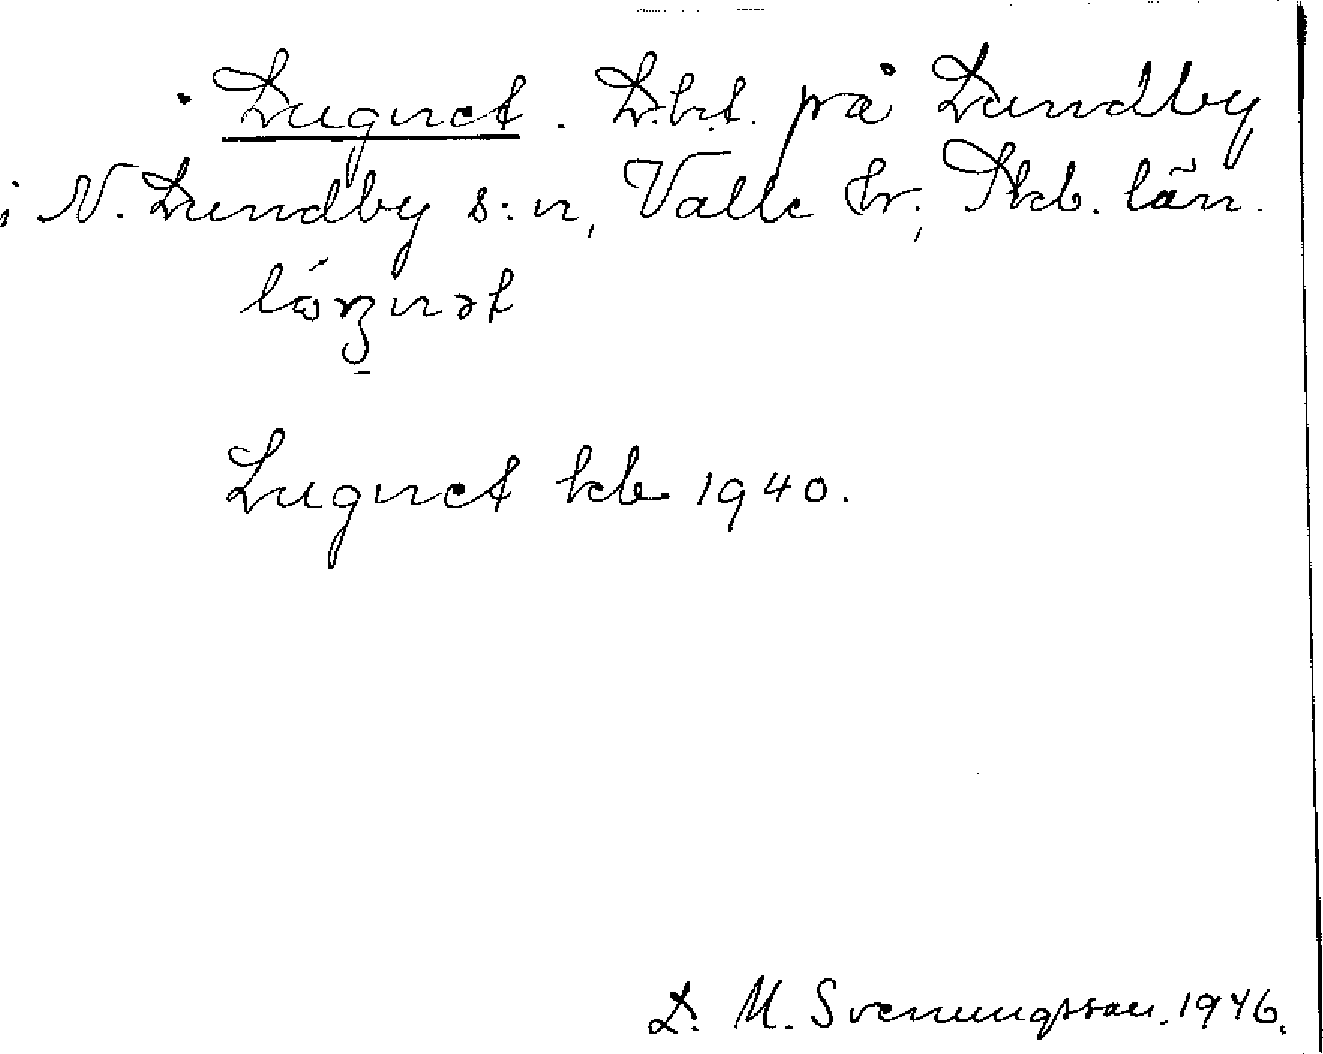 Lugnet. L.h.t. på Lundby
i N. Lundby s:n, Valle hr; Skb. län.
Lugnet kb 1940.
L. M. Svenungsson. 1946.